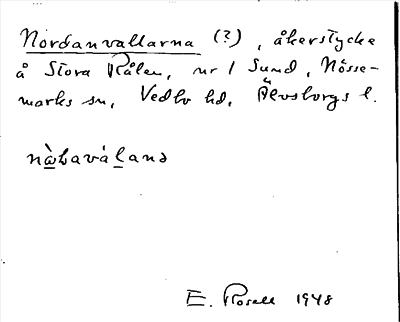 Nordanvallarna (?), åkerstycke
å Stora Rålen, nr 1 Sund, Nösse-
marks sn, Vedbo hd, Älvsborgs l.
E. Rosell 1948